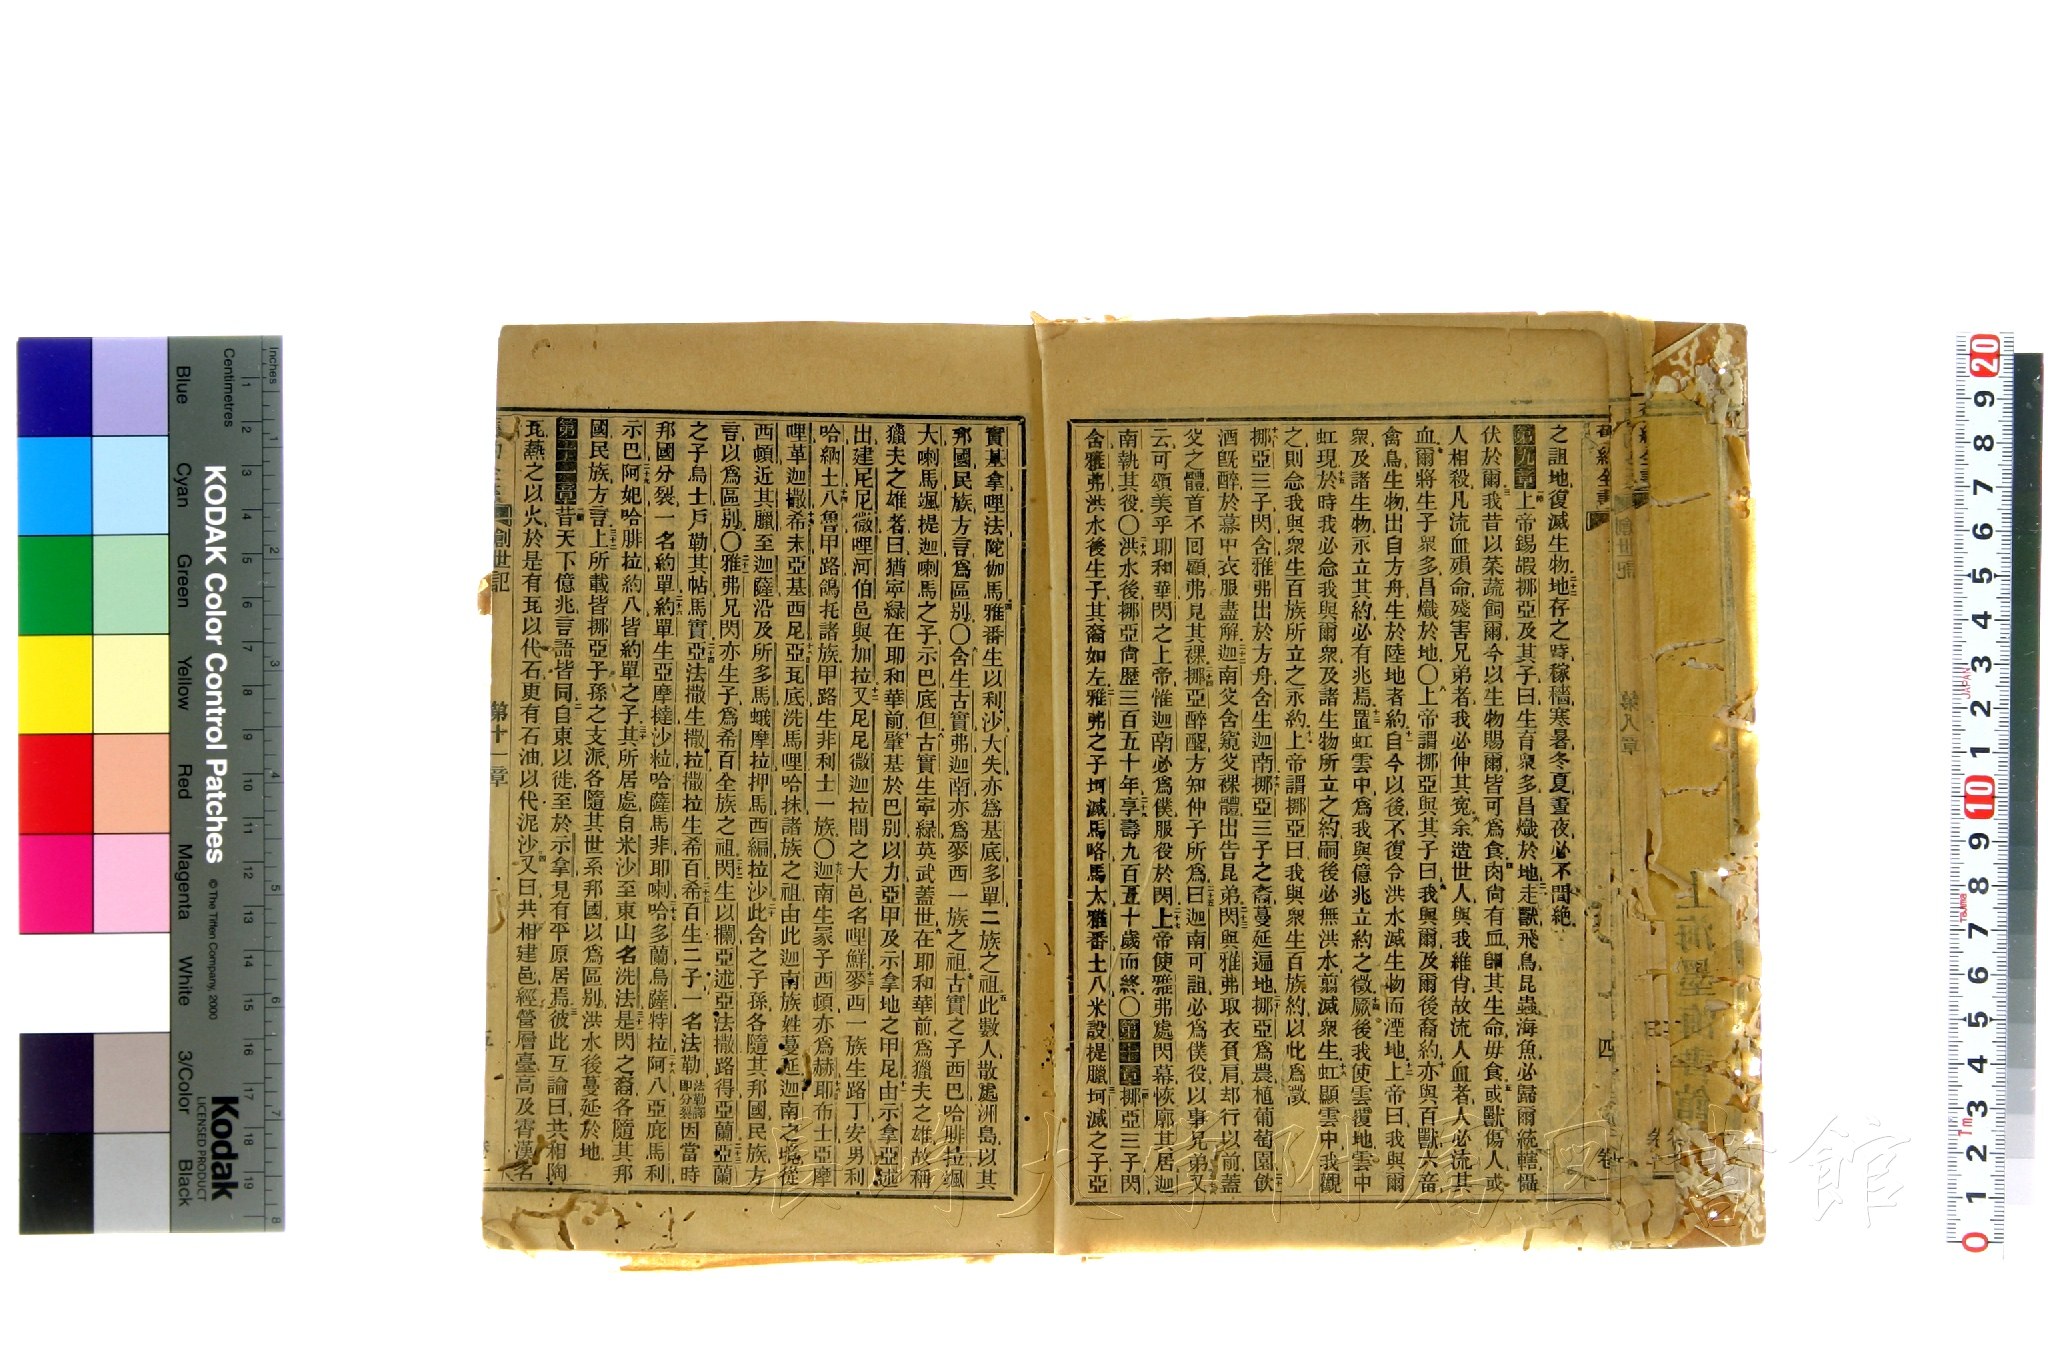 之詛地復滅生物地存之時稼穡寒暑冬夏晝夜必不間絶
第九章上帝錫嘏挪亞及其子曰生育衆多昌熾於地走獸飛鳥昆蟲海魚必歸爾統轄懾
伏於爾我昔以菜蔬飼爾今以生物賜爾皆可爲食肉尚有血卽其生命毋食或獸傷人或
人相殺凡流血殞命殘害兄弟者我必伸其寃余造世人與我維肖故流人血者人必流其
血爾將生子衆多昌熾於地〇上帝謂挪亞與其子曰我與爾及爾後裔約亦與百獸六畜
禽鳥生物出自方舟生於陸地者約自今以後不復令洪水滅生物而湮地上帝曰我與爾
衆及諸生物永立其約必有兆焉置虹雲中爲我與億兆立約之徵厥後我使雲覆地雲中
虹現於時我必念我與爾衆及諸生物所立之約嗣後必無洪水翦滅衆生虹顯雲中我觀
之則念我與衆生百族所立之永約上帝謂挪亞曰我與衆生百族約以此爲徵
挪亞三子閃含雅弗出於方舟含生迦南挪亞三子之裔蔓延遍地挪亞爲農植葡萄園飲
酒旣醉於幕中衣服盡解迦南父含窺父裸體出告昆弟閃與雅弗取衣負肩却行以前蓋
父之體首不回顧弗見其裸挪亞醉醒方知仲子所爲曰迦南可詛必爲僕役以事兄弟又
云可頌美乎耶和華閃之上帝惟迦南必爲僕服役於閃上帝使雅弗處閃幕恢廓其居迦
南執其役〇洪水後挪亞尚歷三百五十年享壽九百五十歲而終〇第十章挪亞三子閃
含雅弗洪水後生子其裔如左雅弗之子坷滅馬略馬太雅番土八米設提臘坷滅之子亞
實基拿哩法陀伽馬雅番生以利沙大失亦爲基底多單二族之祖此數人散處洲島以其
邦國民族方言爲區別〇含生古實弗迦南亦爲麥西一族之祖古實之子西巴哈腓拉颯
大喇馬颯提迦喇馬之子示巴底但古實生寧綠英武蓋世在耶和華前爲獵夫之雄故稱
獵夫之雄者曰猶寧綠在耶和華前肇基於巴別以力亞甲及示拿地之甲尼由示拿亞述
出建尼尼微哩河伯邑與加拉又尼尼微迦拉間之大邑名哩鮮麥西一族生路丁安男利
哈納土八魯甲路鴿托諸族甲路生非利士一族〇迦南生冢子西頓亦爲赫耶布士亞摩
哩革迦撒希未亞基西尼亞瓦底洗馬哩哈抹諸族之祖由此迦南族姓蔓延迦南之境從
西頓近其臘至迦薩沿及所多馬蛾摩拉押馬西編拉沙此含之子孫各隨其邦國民族方
言以爲區別〇雅弗兄閃亦生子爲希百全族之祖閃生以攔亞述亞法撒路得亞蘭亞蘭
之子烏士戶勒其帖馬實亞法撒生撒拉撒拉生希百希百生二子一名法勒法勒譯卽分裂因當時
邦國分裂一名約單約單生亞摩撻沙粒哈薩馬非耶喇哈多蘭烏薩特拉阿八亞庇馬利
示巴阿妃哈腓拉約八皆約單之子其所居處自米沙至東山名洗法是閃之裔各隨其邦
國民族方言上所載皆挪亞子孫之支派各隨其世系邦國以爲區別洪水後蔓延於地
第十一章昔天下億兆言語皆同自東以徙至於示拿見有平原居焉彼此互論曰共相陶
瓦燕之以火於是有瓦以代石更有石油以代泥沙又曰共相建邑經營層臺高及霄漢名
創世記 第十一章
舊約全書 創世記 第八章 四
上海墨海書館
長崎大学附属図書館
KODAK Color Control Patches
© The Tiffen Company, 2000
Kodak
LICENSED PRODUCT
Inches
Centimetres
Blue Cyan Green Yellow Red Magenta White 3/Color Black